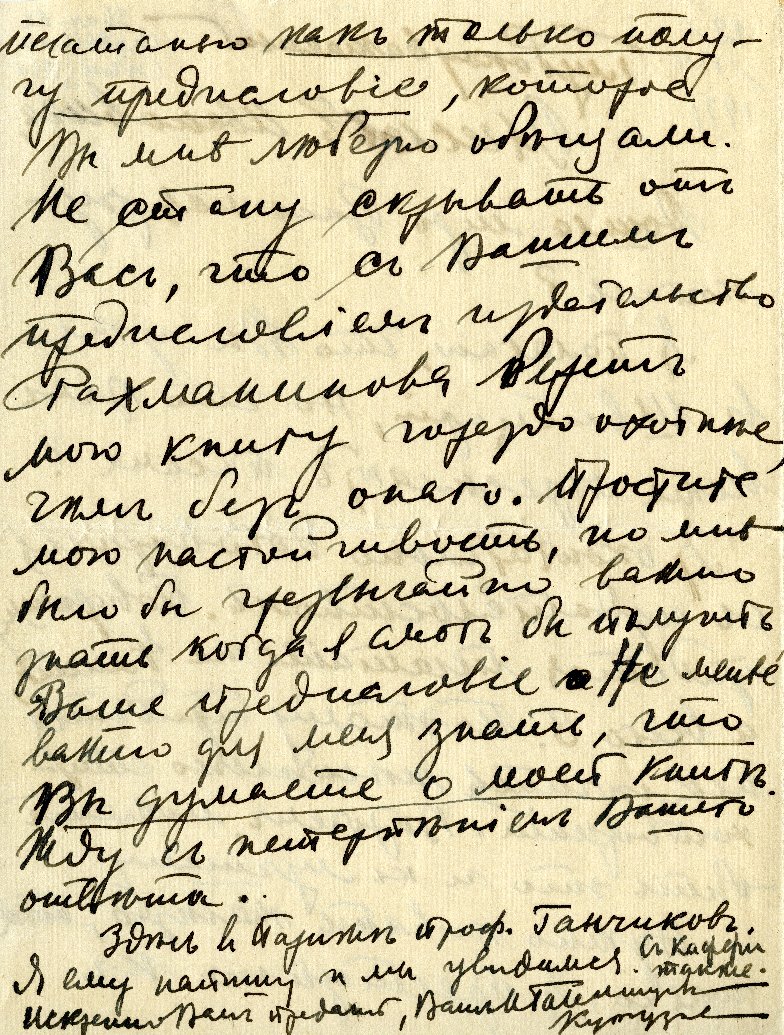 печатанью какъ только полу-
чу предисловіе, которое
Вы мнѣ любезно обѣщали.
Не стану скрывать отъ
Васъ, что съ Вашимъ
предисловіемъ издательство
Рахманинова беретъ
мою книгу гораздо охотнѣе,
чѣмъ безъ онаго. Простите
мою настойчивость, но мнѣ
было бы чрезвычайно важно
знать когда я смогъ бы получить
Ваше предисловіе. Не менѣе
важно для меня знать, что
Вы думаете о моей книгѣ.
Жду съ нетерпѣніемъ Вашего
отвѣта..
Здѣсь въ Парижѣ проф. Ганчиковъ.
Я ему напишу и мы увидимся. Съ Каффи
также.
Искренно Вамъ преданъ, Ваш